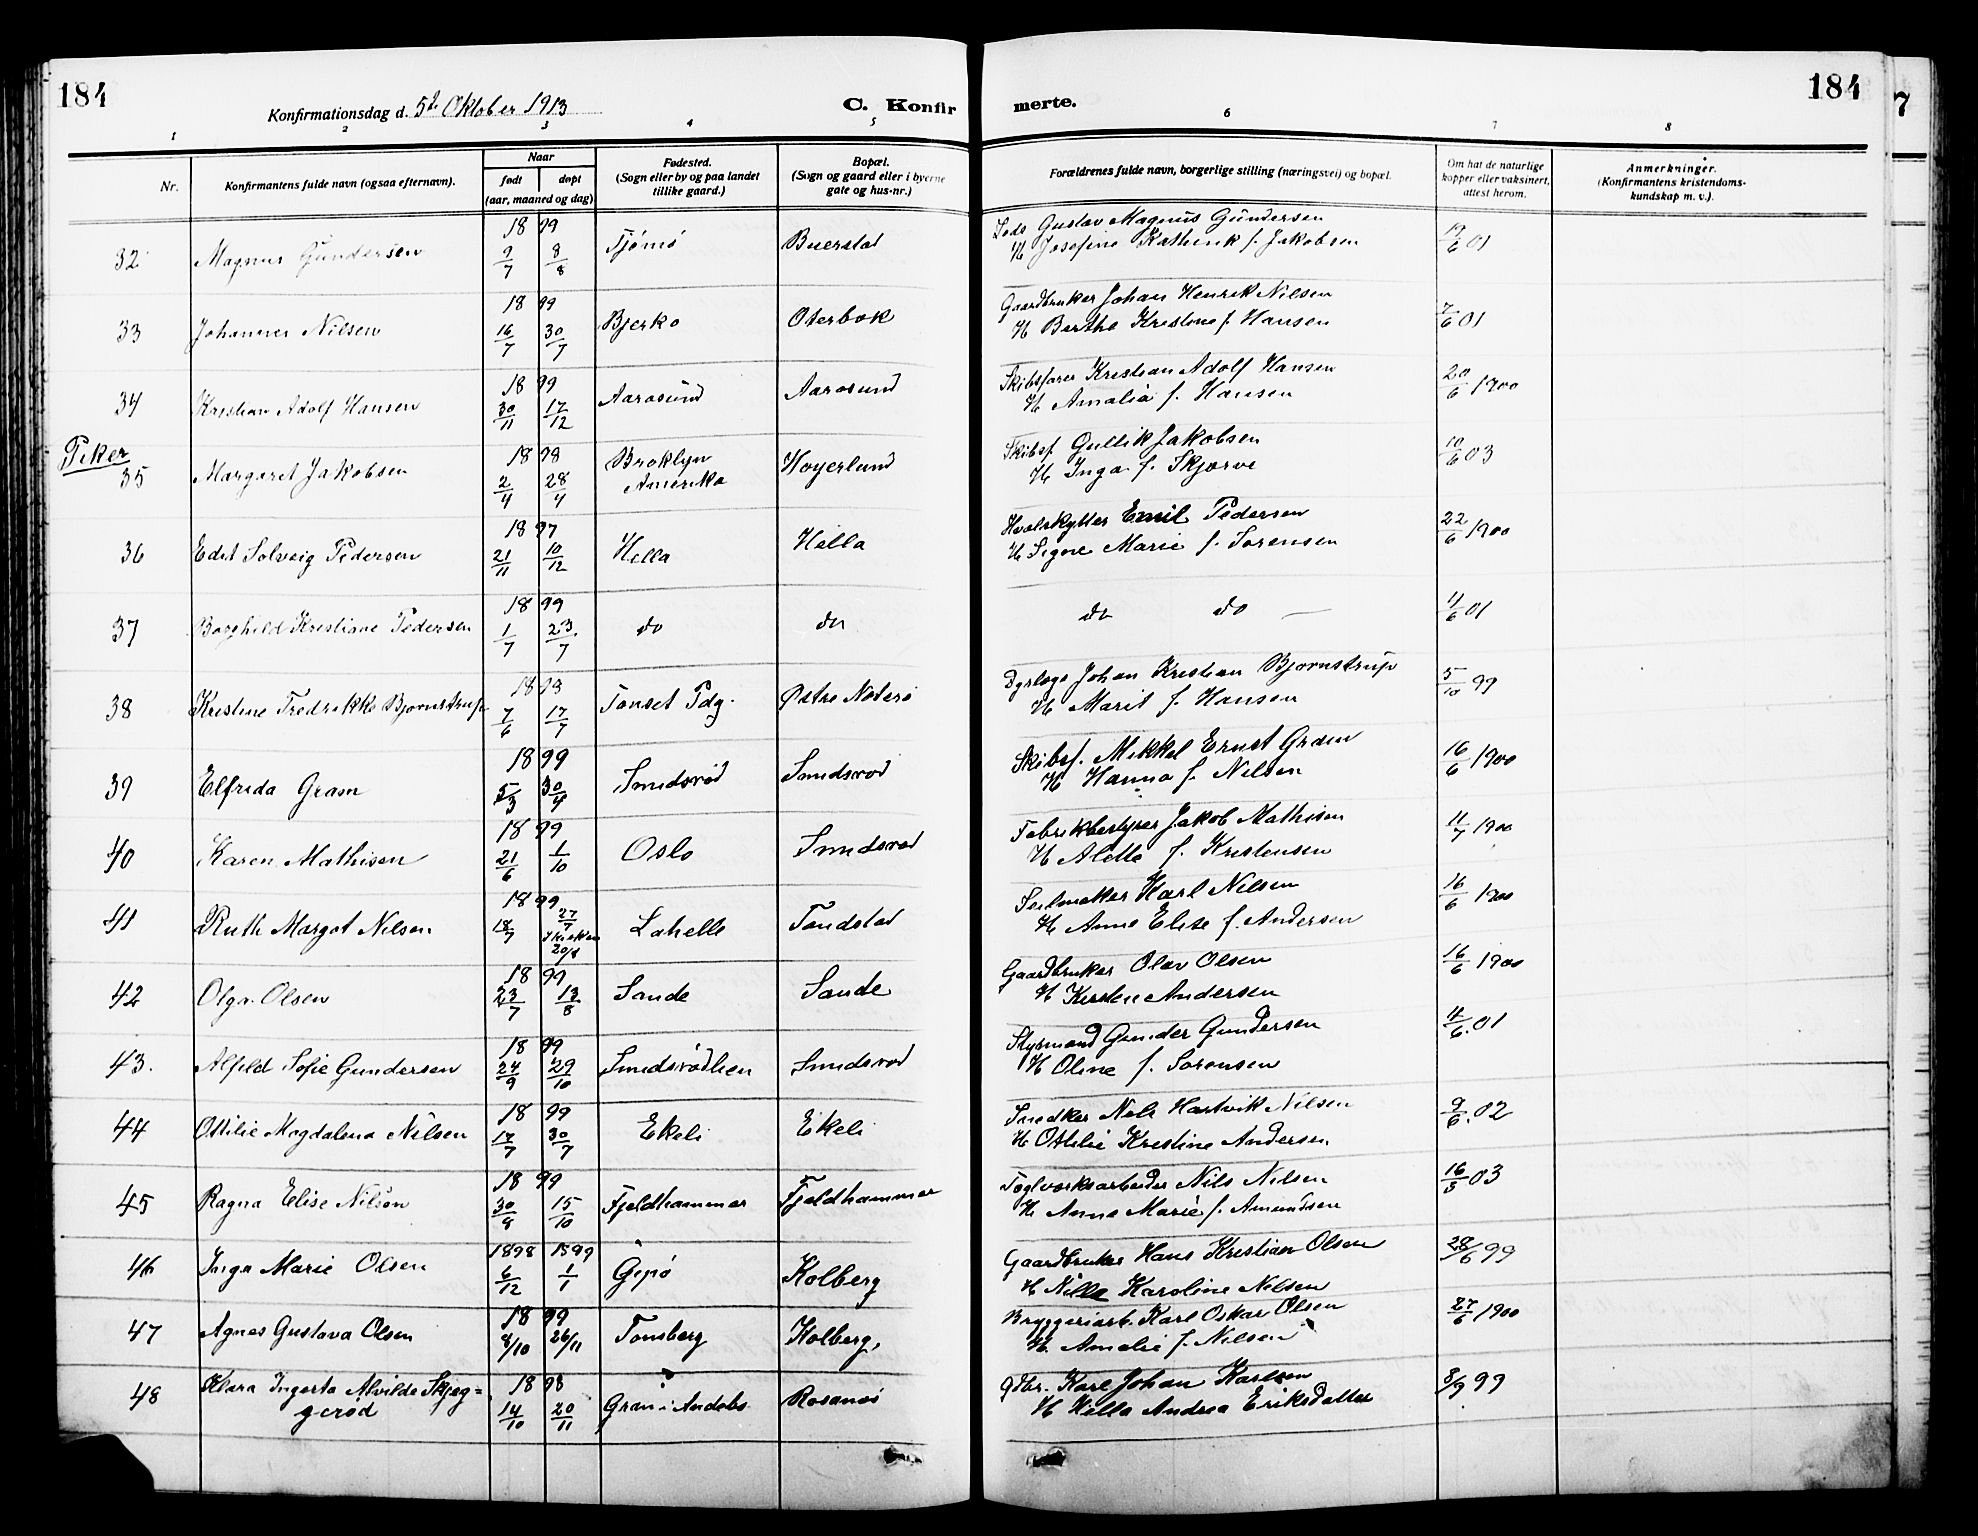 184
Konfirmationsdag d. 5te Oktober 1913
C. Konfir
merte.
184
7
1 2 3 4 5 6 7 8
Nr.
Konfirmantens fulde navn (ogsaa efternavn).
Naar
født døpt
(aar, maaned og dag)
Fødested.
(Sogn eller by og paa landet
tillike gaard.)
Bopæl.
(Sogn og gaard eller i byerne
gate og hus-nr.)
Forældrenes fulde navn, borgerlige stilling (næringsvei) og bopæl.
Om hat de naturlige
kopper eller vaksinert,
attest herom.
Anmerkninger.
(Konfirmantens kristendoms-
kundskap m. v.).
32 Magnus Gundersen 1899 9/7 8/8 Tjømø Buerstad
Lods Gustav Magnus Gundersen
H Josefine Kathrink f. Jakobsen
19/6 01
33 Johannes Nilsen 1899 16/7 30/7 Bjerkø Oterbæk
Gaardbruker Johan Henrik Nilsen
H Berthe Kristine f. Hansen
7/6 01
34 Kristian Adolf Hansen 1899 30/11 17/12 Aarøsund Aarøsund
Skibsfører Kristian Adolf Hansen
H Amalia f. Hansen
20/6 1900
Piker
35 Margaret Jakobsen 1898 2/4 28/4 Broklyn
Amerika
Høyerlund
Skibsf Gullik Jakobsen
H Inga f. Skjørve
10/6 03
36 Edit Solveig Pedersen 1897 21/11 10/12 Hella Hella
Hvalskytter Emil Pedersen
H Signe Marie f. Sørensen
22/6 1900
37 Borghild Kristiane Pedersen 1899 1/7 23/7 do do
do do —
11/6 01
38 Kristine Fredrikke Bjørnstrup 1898 7/6 17/7 Tønset Pdg. Østre Nøterø
Dyrlæge Johan Kristian Bjørnstrup
H Marit f. Hansen
5/10 99
39 Elfrida Gram 1899 5/3 30/4 Smidsrød Smidsrød
Skibsf. Mikkel Ernst Gram
H Hanna f. Nilsen
16/6 1900
40 Karen Mathisen 1899 21/6 1/10 Oslo Smidsrød
Fabrikbestyrer Jakob Mathisen
H Alette f. Kristensen
11/7 1900
41 Ruth Margot Nilsen 1899 18/7 27/7
I kirken
20/8
Lahelle Tandstad
Seilmaker Karl Nilsen
H Anne Elise f. Andersen
16/6 1900
42 Olga Olsen 1899 23/7 13/8 Sande Sande
Gaardbruker Olav Olsen
H Kirsten Andersen
16/6 1900
43. Alfild Sofie Gundersen 1899 24/9 29/10 Smidsrødhen Smidsrød
Styrmand Gunder Gundersen
H Oline f. Sørensen
4/6. 01
44 Ottilie Magdalena Nilsen 1899 17/7 30/7 Ekeli Ekeli
Snedker Nils Hartvik Nilsen
H Ottilie Kristine Andersen
9/6. 02
45 Ragna Elise Nilsen 1899 30/8 15/10 Fjeldhammer Fjeldhammer
Teglverksarbeider Nils Nilsen
H Anna Marie f. Amundsen
16/5 03
46 Inga Marie Olsen 1898 6/12 1899 1/1 Gipø Kolberg
Gaardbruker Hans Kristian Olsen
H Nilla Karoline Nilsen
28/6 99
47 Agnes Gustava Olsen 1899 8/10 26/11 Tønsberg Kolberg,
Bryggeriarb. Karl Oskar Olsen
H Amalie f. Nilsen
27/6 1900
48 Klara Ingerta Alvilde Skjeg=
gerød
1898 14/10 20/11 Gran i Andebo Rosanes
Gdbr. Karl Johan Karlsen
H Hella Andrea Eriksdatter
8/9 99